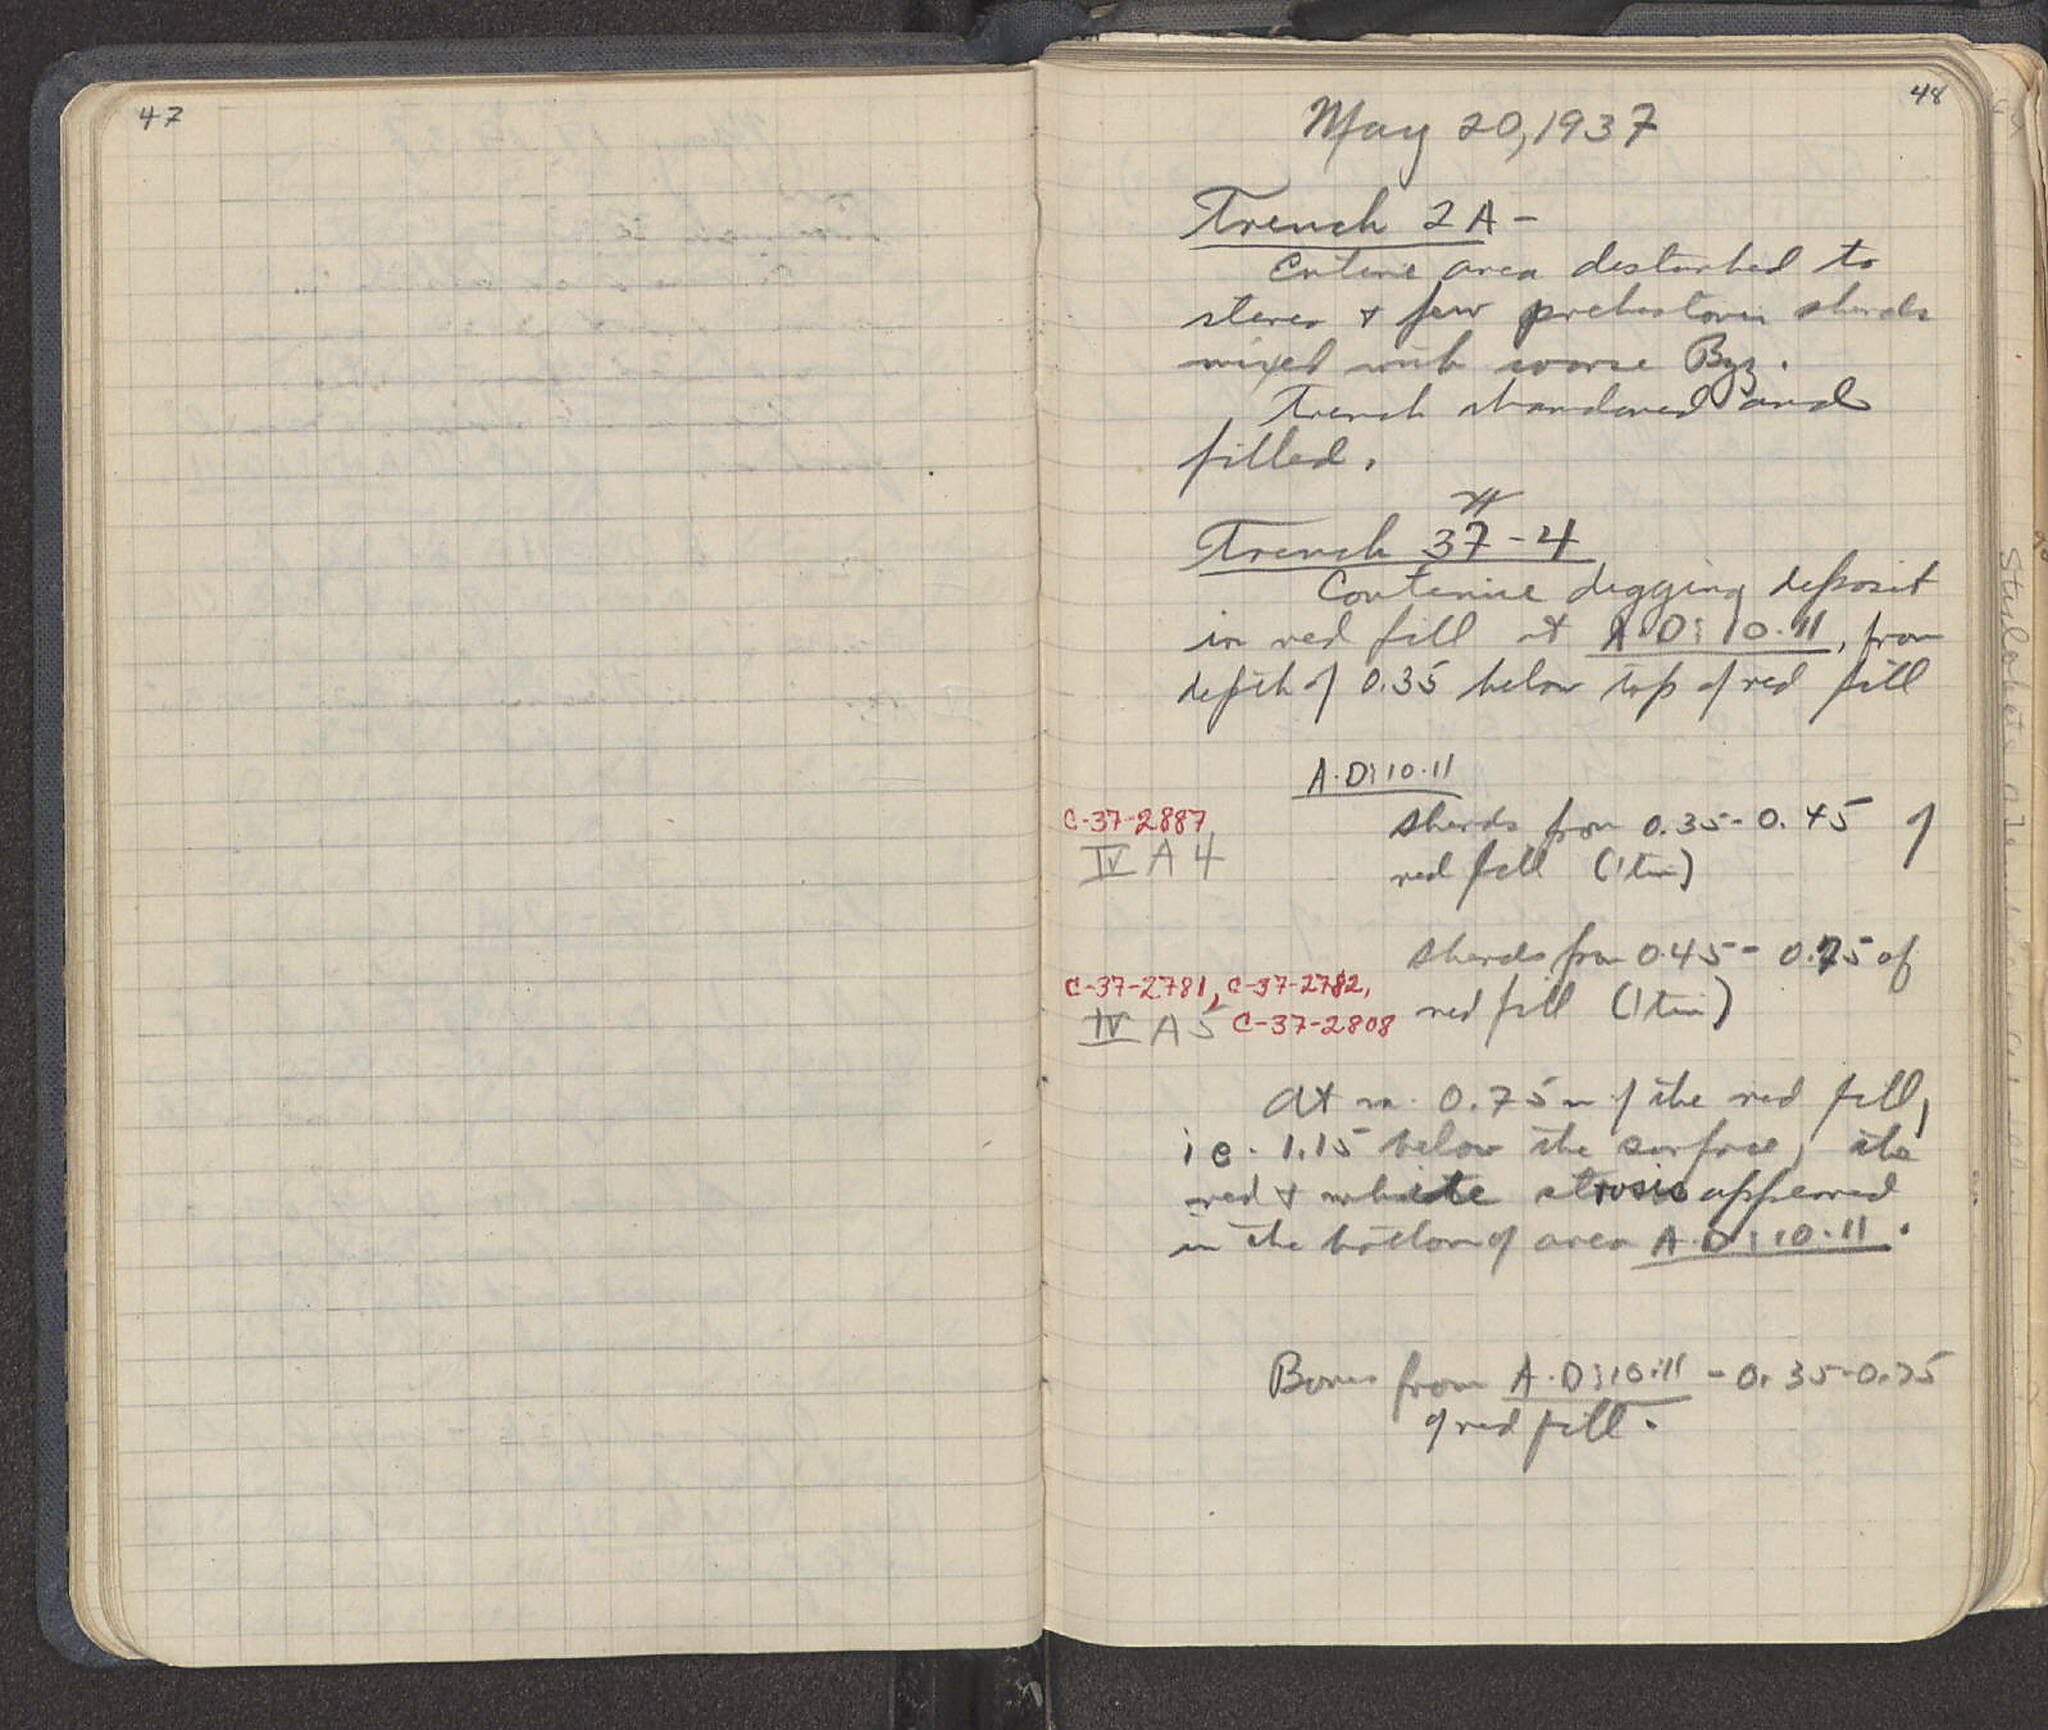 47
48
May 20, 1937
Trench 2A –
Entire area disturbed to
stereo + few prehistoric sherds
mixed with coarse Byz.
Trench abandoned and
filled.
Trench 37-4
Continue digging deposit
in red fill at A-D: 10-11, from
depth of 0.35 below top of red fill
A-D: 10-11
C-37-2887
IV A 4
sherds from 0.35-0.45 of
red fill (1 tin)
sherds from 0.45 - 0.75 of
C-37-2781, C-37-2782,
IV A 5 C-37-2808
red fill (1 tin)
At ca. 0.75 m of the red fill,
i.e. 1.15 below the surface, the
red + white strosis appeared
in the bottom of area A-D: 10-11.
Bones from A-D: 10-11 - 0.35-0.75
of red fill.